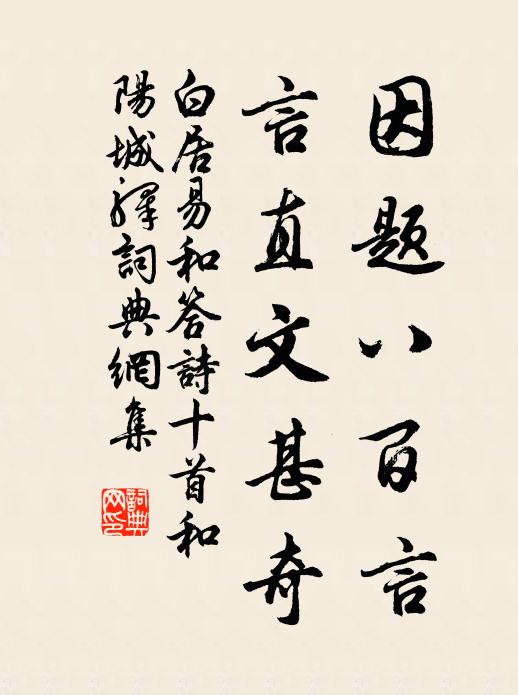 因题八百言
言直文甚奇
白居易和答詩十首和
陽城驛詞典網集
詞典网印